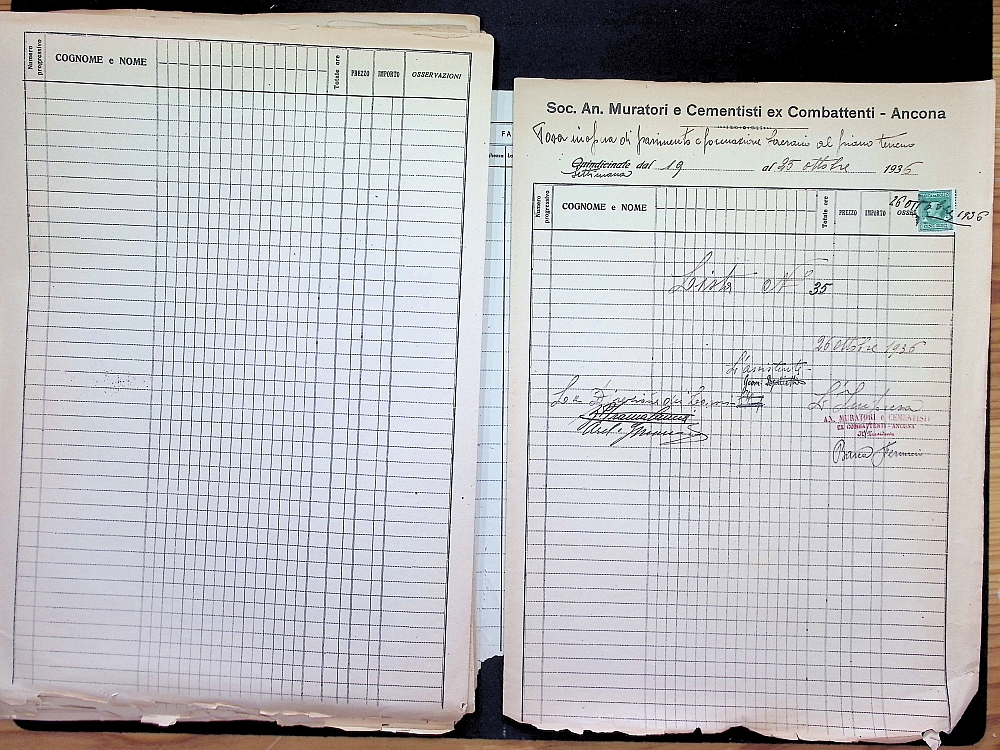 Numero progressivo
COGNOME e NOME
Totale ore
PREZZO
IMPORTO
OSSERVAZIONI
FA
Soc. An. Muratori e Cementisti ex Combattenti - Ancona
Posa in opra di pavimento e formazione al piano terreno
Quindicinale dal 19 al 25 ottobre 1936
Settimana
Numero progressivo
COGNOME e NOME
Totale ore
PREZZO
IMPORTO
OSSE
26 1936
Lista N° 35
26 ottobre 1936
L'assistente
La Direzione dei Lavori
L'Impresa
AN. MURATORI e CEMENTISTI
EX COMBATTENTI - ANCONA
Arch.